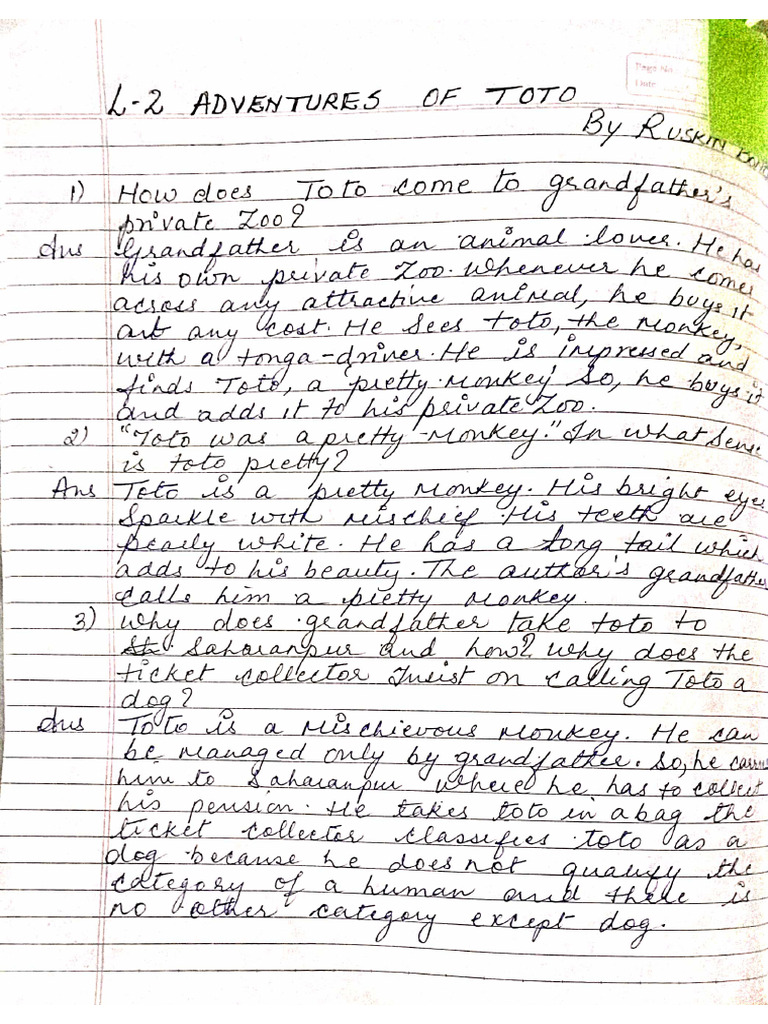 Page No.
Date
L-2 ADVENTURES OF TOTO
By RUSKIN Bond
1) How does Toto come to grandfather's
private Zoo?
Ans Grandfather is an animal lover. He has
his own private Zoo. Whenever he comes
across any attractive animal, he buys it
at any cost. He sees Toto, the monkey,
with a tonga-driver. He is impressed and
finds Toto, a pretty monkey so, he buys it
and adds it to his private Zoo.
2) "Toto was a pretty monkey." In what sense
is toto pretty?
Ans Toto is a pretty monkey. His bright eyes
sparkle with mischief. His teeth are
pearly white. He has a long tail which
adds to his beauty. The author's grandfather
calls him a pretty monkey.
3) Why does grandfather take toto to
Saharanpur and how? Why does the
ticket collector Insist on calling Toto a
dog?
Ans Toto is a mischievous monkey. He can
be managed only by grandfather. So, he carries
him to Saharanpur where he has to collect
his pension. He takes toto in a bag the
ticket collector classifies toto as a
dog because he does not quality the
category of a human and there is
no other category except dog.